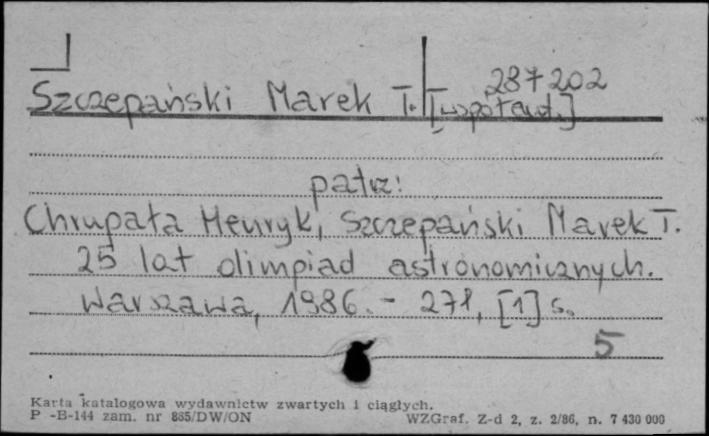 287202
Szczepański Marek T. [współaut.]
patrz:
Chrupała Henryk, Szczepański Marek T.
25 lat olimpiad astronomicznych.
Warszawa, 1986. - 271, [1] s.
5
Karta katalogowa wydawnictw zwartych i ciągłych.
P -B-144 zam. nr 885/DW/ON WZGraf. Z-d 2, z. 2/86, n. 7 430 000